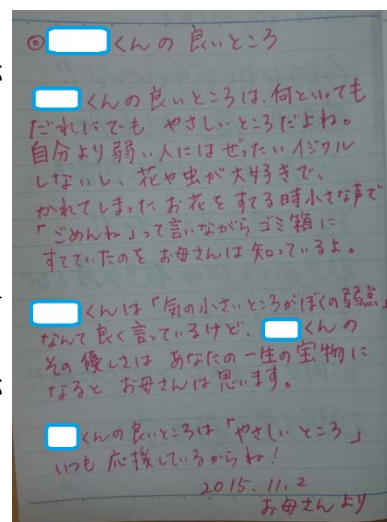 ◎ くんの良いところ
くんの良いところは、何といっても
だれにでも やさしいところだよね。
自分より弱い人にはぜったいイジワル
しないし、花や虫が大好きで、
かれてしまったお花をすてる時小さな声で
「ごめんね」って言いながらゴミ箱に
すてていたのをお母さんは知っているよ。
くんは「気の小さいところがぼくの弱点」
なんて良く言っているけど、 くんの
その優しさは あなたの一生の宝物に
なると お母さんは思います。
くんの良いところは「やさしいところ」
いつも応援しているからね!
2015.11.2
お母さんより